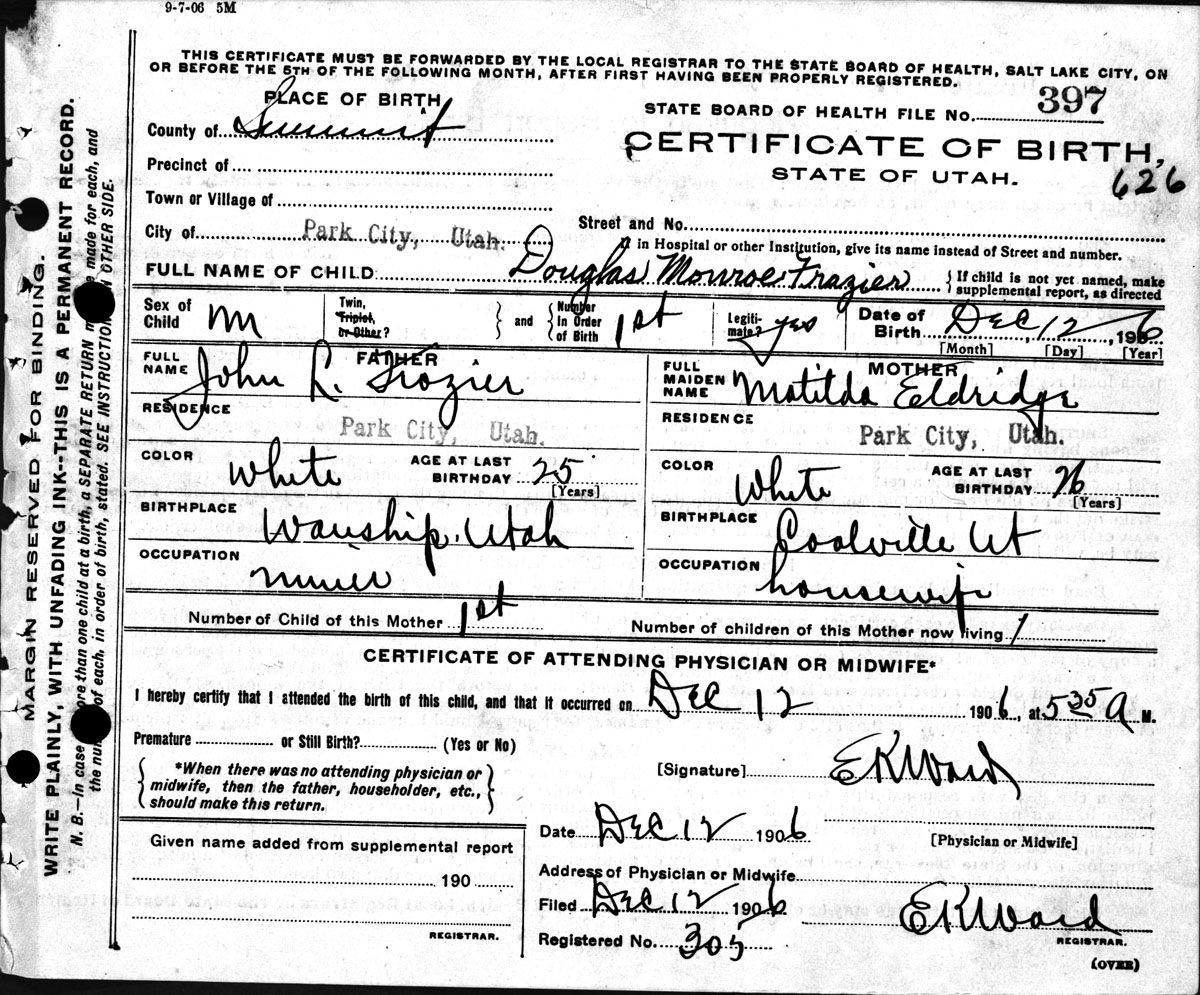 9-7-06 5M
THIS CERTIFICATE MUST BE FORWARDED BY THE LOCAL REGISTRAR TO THE STATE BOARD OF HEALTH, SALT LAKE CITY, ON
OR BEFORE THE 5TH OF THE FOLLOWING MONTH, AFTER FIRST HAVING BEEN PROPERLY REGISTERED.
PLACE OF BIRTH
STATE BOARD OF HEALTH FILE No. 397
County of Summit
CERTIFICATE OF BIRTH,
STATE OF UTAH.
626
Precinct of
Town or Village of
Street and No.
City of Park City, Utah.
in Hospital or other Institution, give its name instead of Street and number.
FULL NAME OF CHILD Douglas Monroe Frazier { If child is not yet named, make
supplemental report, as directed
Sex of
Child M
Twin,
Triplet,
or Other?
} and {
Number
In Order
of Birth 1st
Legiti-
mate? yes
Date of
Birth Dec 12, 1906
[Month] [Day] [Year]
FATHER
FULL
NAME John L. Frazier
RESIDENCE
Park City, Utah.
COLOR White
AGE AT LAST
BIRTHDAY 25
[Years]
BIRTHPLACE Wanship, Utah
OCCUPATION miner
MOTHER
FULL
MAIDEN
NAME Matilda Eldridge
RESIDENCE
Park City, Utah.
COLOR White
AGE AT LAST
BIRTHDAY 26
[Years]
BIRTHPLACE Coalville Ut
OCCUPATION housewife
Number of Child of this Mother 1st
Number of children of this Mother now living 1
CERTIFICATE OF ATTENDING PHYSICIAN OR MIDWIFE*
I hereby certify that I attended the birth of this child, and that it occurred on Dec 12 1906, at 5 35 A M.
Premature or Still Birth? (Yes or No)
{ *When there was no attending physician or
midwife, then the father, householder, etc.,
should make this return. }
[Signature] E K Ward
Date Dec 12 1906
[Physician or Midwife]
Given name added from supplemental report
190
REGISTRAR.
Address of Physician or Midwife
Filed Dec 12 1906
E K Ward
REGISTRAR.
Registered No. 305
(OVER)
MARGIN RESERVED FOR BINDING.
WRITE PLAINLY, WITH UNFADING INK--THIS IS A PERMANENT RECORD.
N. B.--In case more than one child at a birth, a SEPARATE RETURN made for each, and
the num of each, in order of birth, stated. SEE INSTRUCTION OTHER SIDE.